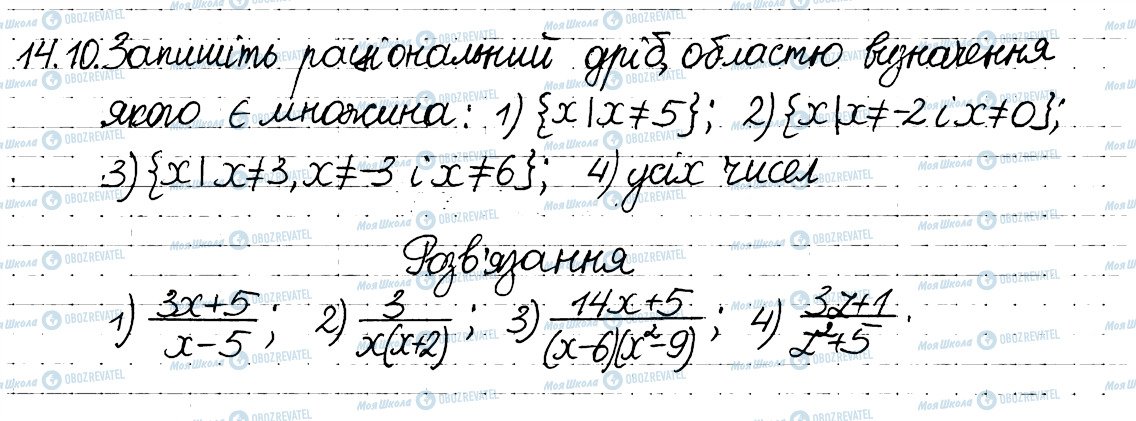 14.10. Запишіть раціональний дріб, областю визначення
якого є множина: 1) {x | x ≠ 5}; 2) {x | x ≠ -2 і x ≠ 0};
3) {x | x ≠ 3, x ≠ -3 і x ≠ 6}; 4) усіх чисел
Розв'язання
1) (3x+5)/(x-5); 2) 3/(x(x+2)); 3) (14x+5)/((x-6)(x²-9)); 4) (3z+1)/(z²+5).